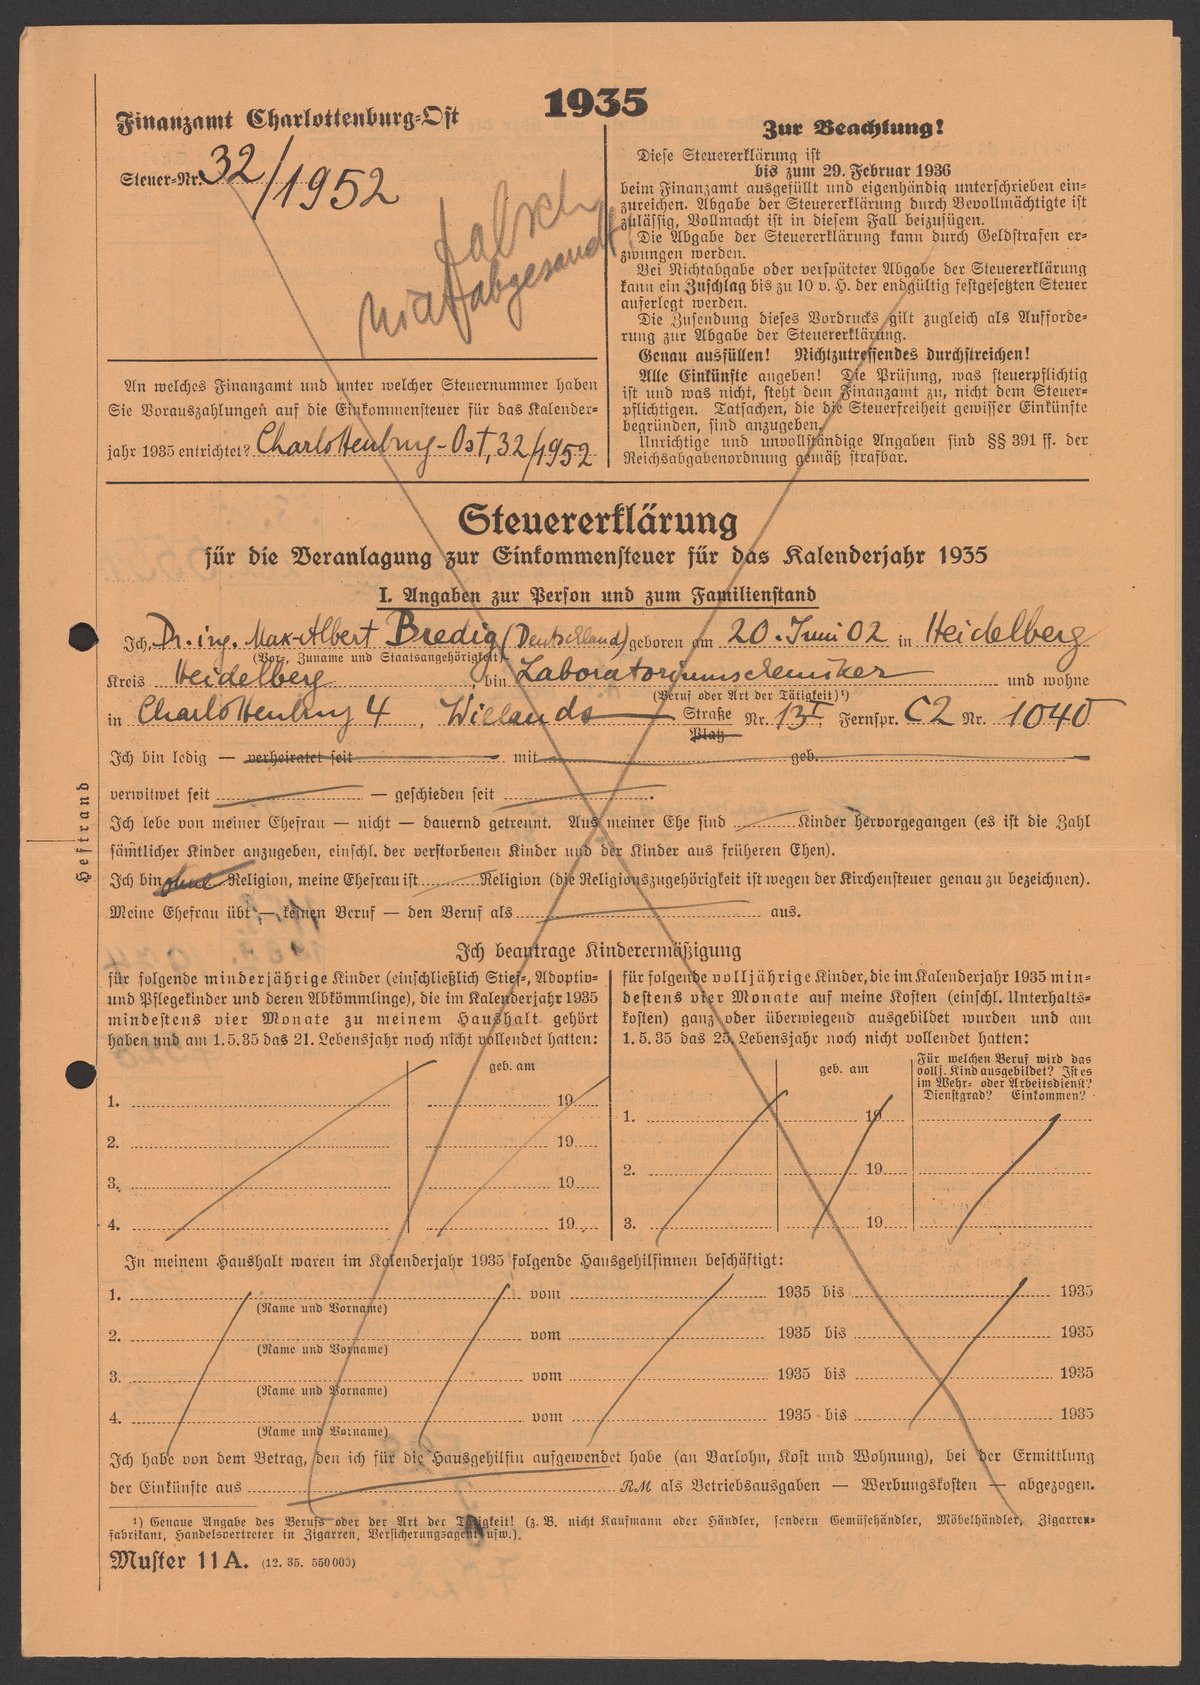 1935
Finanzamt Charlottenburg-Ost
Steuer-Nr. 32/1952
falsch
nicht abgesandt!
An welches Finanzamt und unter welcher Steuernummer haben
Sie Vorauszahlungen auf die Einkommensteuer für das Kalender-
jahr 1935 entrichtet? Charlottenburg-Ost, 32/1952
Zur Beachtung!
Diese Steuererklärung ist
bis zum 29. Februar 1936
beim Finanzamt ausgefüllt und eigenhändig unterschrieben ein-
zureichen. Abgabe der Steuererklärung durch Bevollmächtigte ist
zulässig, Vollmacht ist in diesem Fall beizufügen.
Die Abgabe der Steuererklärung kann durch Geldstrafen er-
zwungen werden.
Bei Nichtabgabe oder verspäteter Abgabe der Steuererklärung
kann ein Zuschlag bis zu 10 v. H. der endgültig festgesetzten Steuer
auferlegt werden.
Die Zusendung dieses Vordrucks gilt zugleich als Aufforde-
rung zur Abgabe der Steuererklärung.
Genau ausfüllen! Nichtzutreffendes durchstreichen!
Alle Einkünfte angeben! Die Prüfung, was steuerpflichtig
ist und was nicht, steht dem Finanzamt zu, nicht dem Steuer-
pflichtigen. Tatsachen, die die Steuerfreiheit gewisser Einkünfte
begründen, sind anzugeben.
Unrichtige und unvollständige Angaben sind §§ 391 ff. der
Reichsabgabenordnung gemäß strafbar.
Steuererklärung
für die Veranlagung zur Einkommensteuer für das Kalenderjahr 1935
I. Angaben zur Person und zum Familienstand
Ich, Dr. ing. Max-Albert Bredig (Deutschland) geboren am 20. Juni 02 in Heidelberg
(Vor-, Zuname und Staatsangehörigkeit)
Kreis Heidelberg, bin Laboratoriumschemiker und wohne
(Beruf oder Art der Tätigkeit)¹)
in Charlottenburg 4, Wielands Straße Nr. 13 I, Fernspr. C2 Nr. 1040
Platz
Ich bin ledig — verheiratet seit mit geb.
verwitwet seit — geschieden seit .
Ich lebe von meiner Ehefrau — nicht — dauernd getrennt. Aus meiner Ehe sind Kinder hervorgegangen (es ist die Zahl
sämtlicher Kinder anzugeben, einschl. der verstorbenen Kinder und der Kinder aus früheren Ehen).
Ich bin ohne Religion, meine Ehefrau ist Religion (die Religionszugehörigkeit ist wegen der Kirchensteuer genau zu bezeichnen).
Meine Ehefrau übt — keinen Beruf — den Beruf als aus.
Heftrand
Ich beantrage Kinderermäßigung
für folgende minderjährige Kinder (einschließlich Stief-, Adoptiv-
und Pflegekinder und deren Abkömmlinge), die im Kalenderjahr 1935
mindestens vier Monate zu meinem Haushalt gehört
haben und am 1. 5. 35 das 21. Lebensjahr noch nicht vollendet hatten:
geb. am
1. 19
2. 19
3. 19
4. 19
für folgende volljährige Kinder, die im Kalenderjahr 1935 min-
destens vier Monate auf meine Kosten (einschl. Unterhalts-
kosten) ganz oder überwiegend ausgebildet wurden und am
1. 5. 35 das 25. Lebensjahr noch nicht vollendet hatten:
geb. am
Für welchen Beruf wird das
vollj. Kind ausgebildet? Ist es
im Wehr- oder Arbeitsdienst?
Dienstgrad? Einkommen?
1. 19
2. 19
3. 19
In meinem Haushalt waren im Kalenderjahr 1935 folgende Hausgehilfinnen beschäftigt:
1. vom 1935 bis 1935
(Name und Vorname)
2. vom 1935 bis 1935
(Name und Vorname)
3. vom 1935 bis 1935
(Name und Vorname)
4. vom 1935 bis 1935
(Name und Vorname)
Ich habe von dem Betrag, den ich für die Hausgehilfin aufgewendet habe (an Barlohn, Kost und Wohnung), bei der Ermittlung
der Einkünfte aus RM als Betriebsausgaben — Werbungskosten — abgezogen.
¹) Genaue Angabe des Berufs oder der Art der Tätigkeit! (z. B. nicht Kaufmann oder Händler, sondern Gemüsehändler, Möbelhändler, Zigarren-
fabrikant, Handelsvertreter in Zigarren, Versicherungsagent usw.).
Muster 11 A. (12. 35. 550 000)